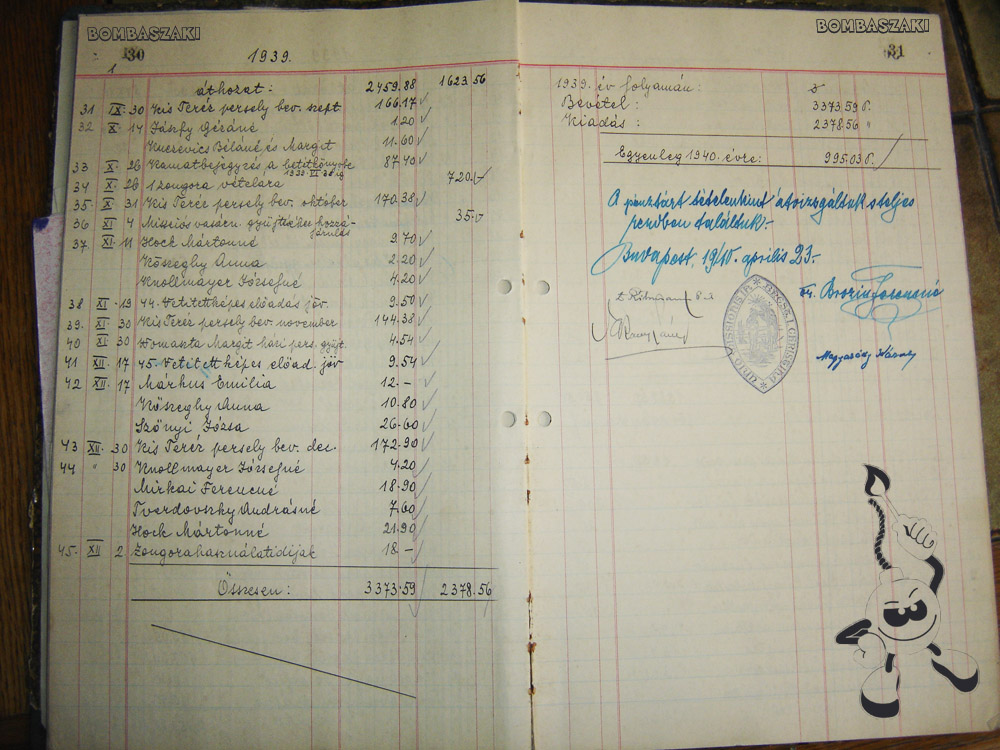 BOMBASZAKI
30
1939.
áthozat: 2459.88 1623.56
31 IX. 30 Kis Teréz persely bev. szept 166.17
32 X. 14 Jászfy Gézáné 1.20
Knezevics Béláné és Margit 11.60
33 X. 26 Kamatbejegyzés a betétkönyvbe 87.40
34 X 26 1 zongora vételára 720.-
35. X 31 Kis Teréz persely bev. október 170.38
36 XI 4 Missiós vasárn. gyüjtéséhez hozzá-
járulás 35.-
37. XI. 11 Hock Mártonné 9.70
Kőszeghy Anna 2.20
Knollmayer Józsefné 4.20
38 XI. 19 44. Vetitettképes előadás jöv. 9.50
39. XI. 30 Kis Teréz persely bev. november 144.38
40 XI. 30 Margit házi pers. gyüjt. 4.54
41 XII. 17 45. Vetitettképes előad. jöv 9.54
42 XII. 17 Márkus Emilia 12.-
Kőszeghy Anna 10.80
Szőnyi Józsa 26.60
43 XII. 30 Kis Teréz persely bev. dec. 172.90
44 " 30 Knollmayer Józsefné 4.20
Mirkai Ferencné 18.90
Tverdovszky Andrásné 7.60
Hock Mártonné 21.90
45. XII 2 Zongorahasználatidíjak 18.-
Összesen: 3373.59 2378.56
BOMBASZAKI
31
1939. év folyamán:
Bevétel: 3373.59 P.
Kiadás: 2378.56 "
Egyenleg 1940. évre: 995.03 P.
A pénztárt tételenkint átvizsgáltuk s teljes
rendben találtuk.-
Budapest, 1940. április 23.-
UNIO MISSIONARIA